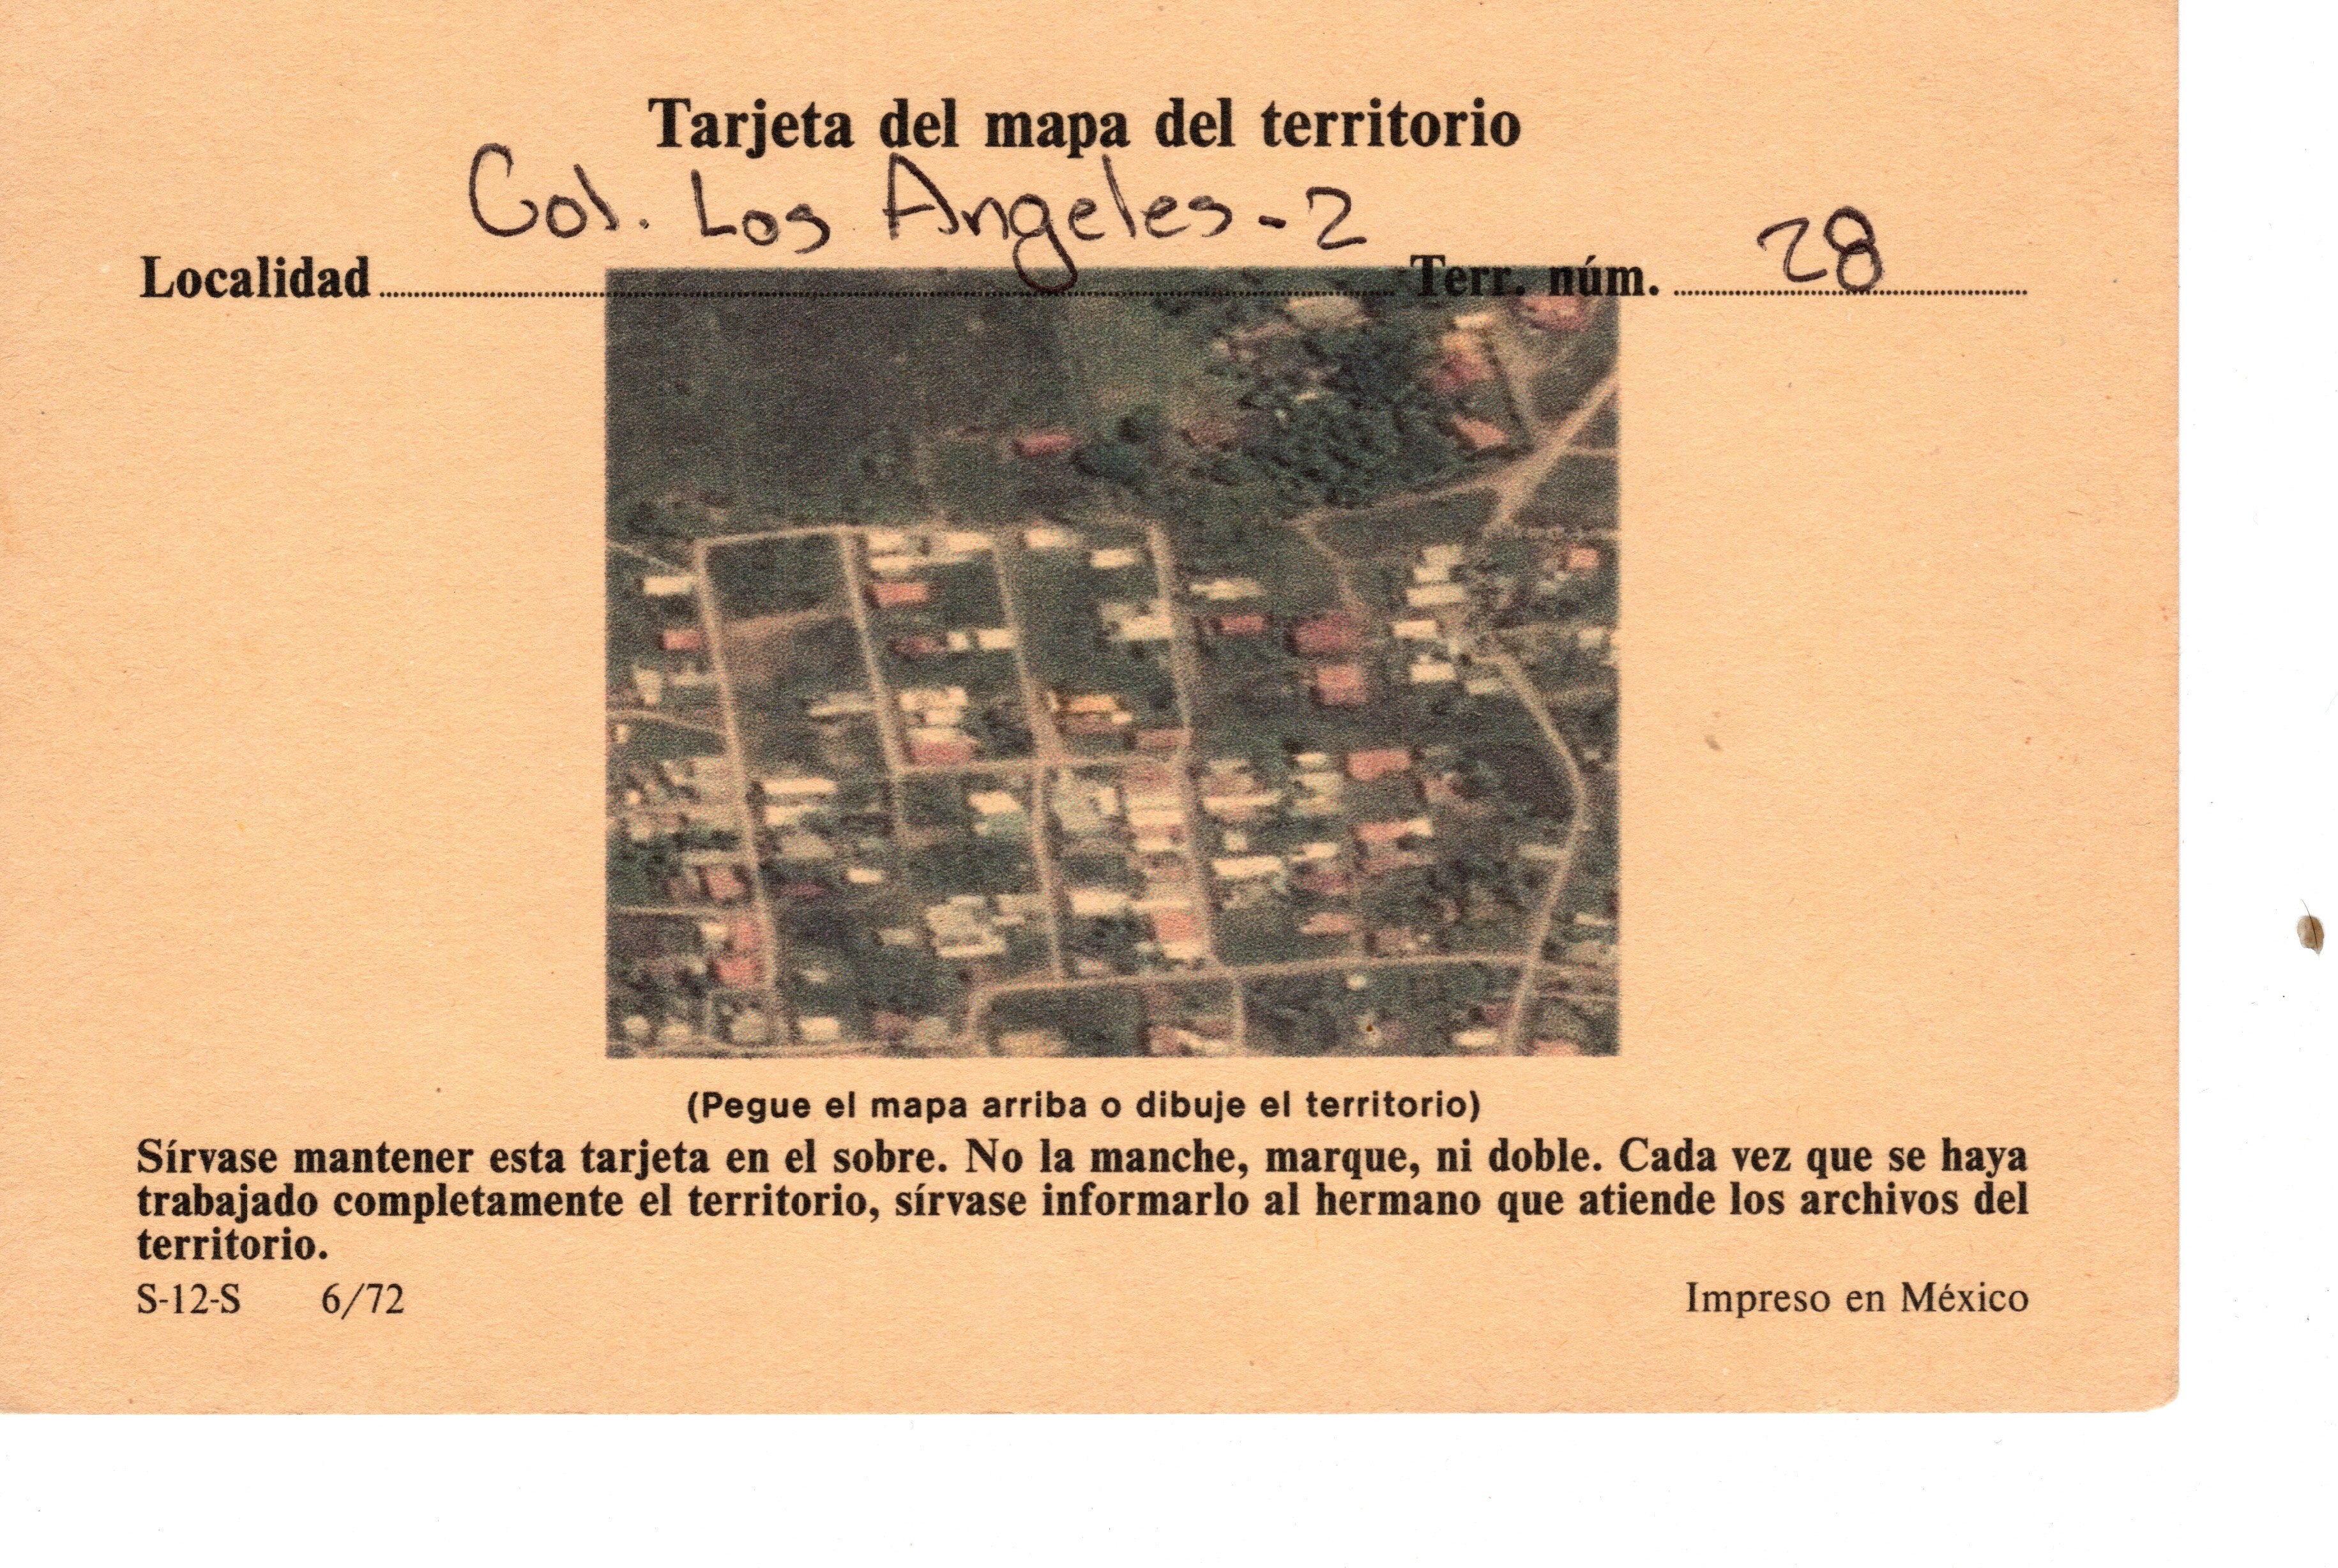 Tarjeta del mapa del territorio
Col. Los Angeles - 2
Localidad Terr. núm. 28
(Pegue el mapa arriba o dibuje el territorio)
Sírvase mantener esta tarjeta en el sobre. No la manche, marque, ni doble. Cada vez que se haya
trabajado completamente el territorio, sírvase informarlo al hermano que atiende los archivos del
territorio.
S-12-S 6/72 Impreso en México